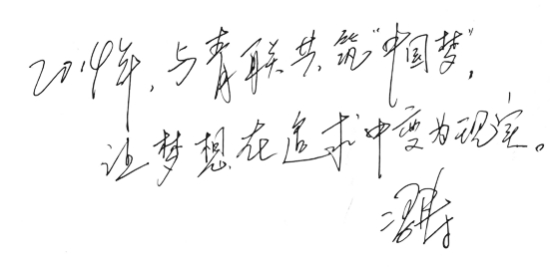 2014年,与青联共筑“中国梦”,
让梦想在追求中变为现实。